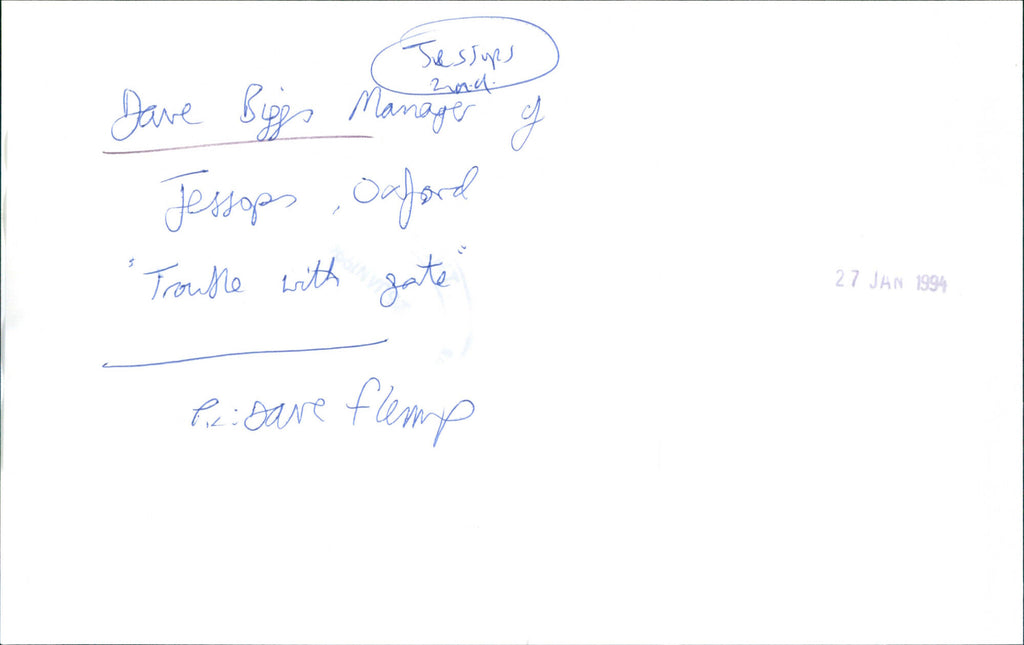 Jessops
Dave Biggs Manager of
Jessops, Oxford
"Trouble with gate"
27 JAN 1994
Dave